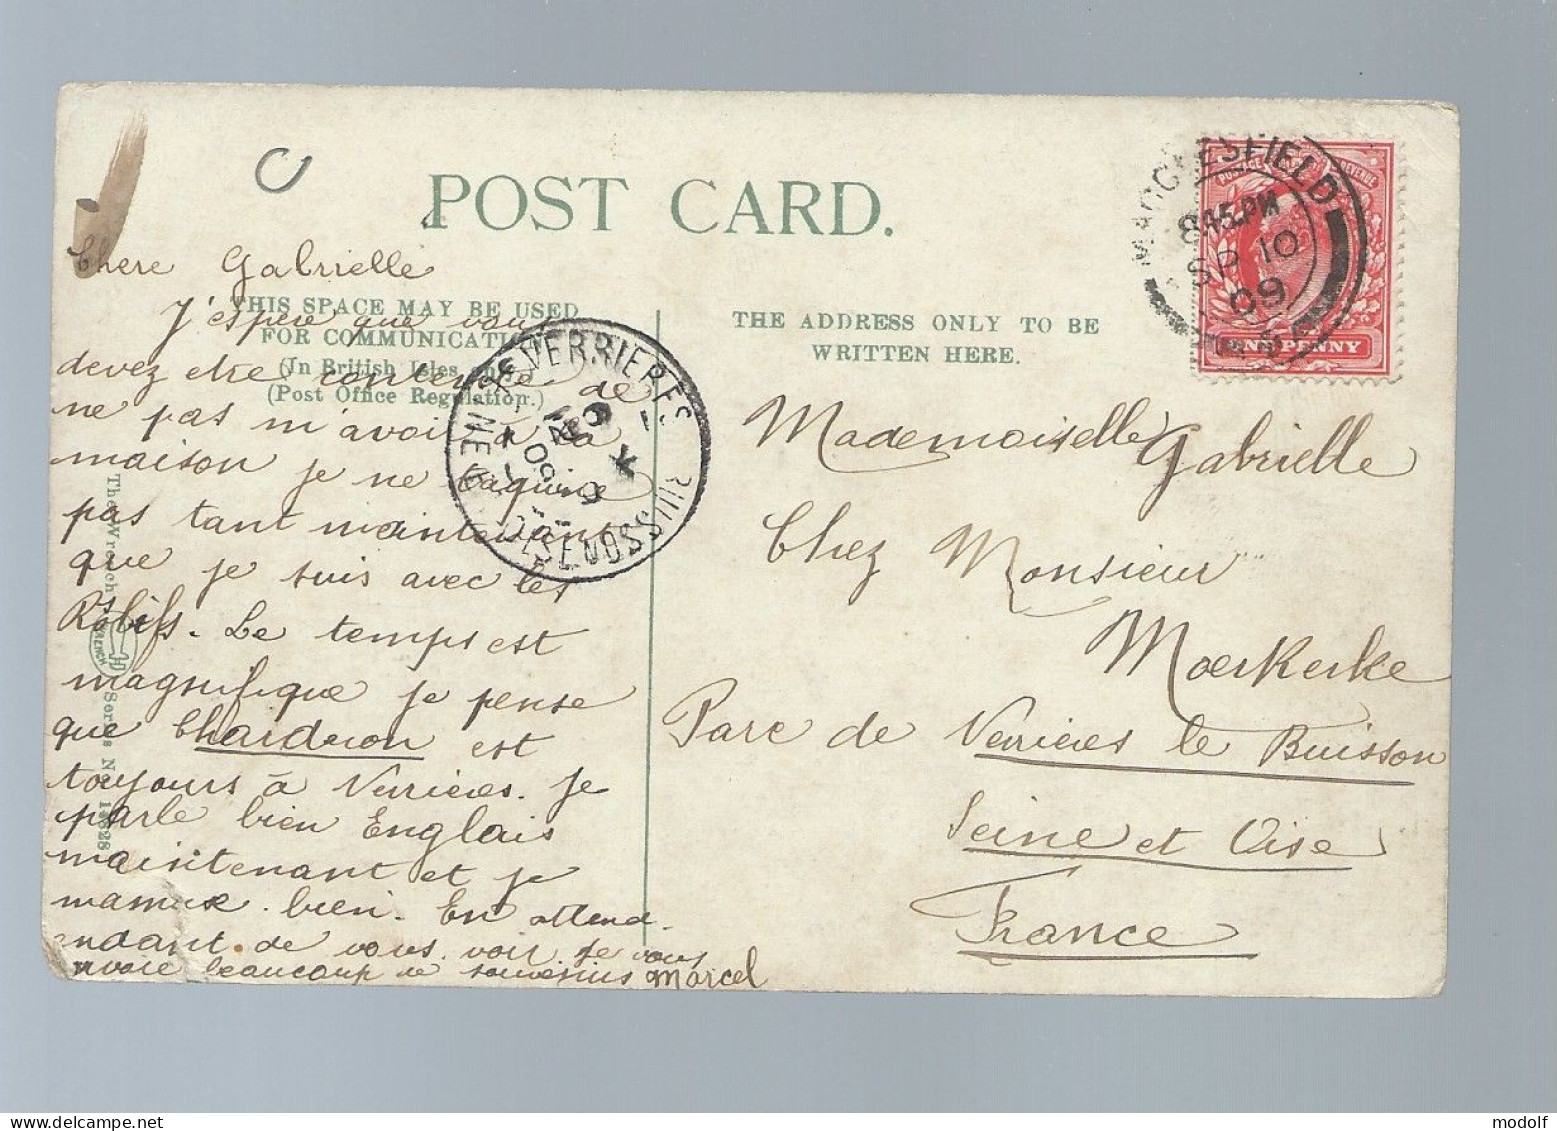 POST CARD.
THIS SPACE MAY BE USED
FOR COMMUNICATION
(In British Isles only
(Post Office Regulation.)
THE ADDRESS ONLY TO BE
WRITTEN HERE.
MACCLESFIELD
8.45.PM
SP 10
09
POSTAGE REVENUE
ONE PENNY
VERRIERES
BUISSON
SEINE
OISE
Chere Gabrielle
J'espere que vous
devez etre contente de
ne pas m'avoir à la
maison je ne taquine
pas tant maintenant
que je suis avec les
Le temps est
magnifique je pense
que Chaidron est
toujours à Verrieres. Je
parle bien Englais
maintenant et je
mamuse bien. En attend-
endant de vous voir Je vous
envoie beaucoup de souvenirs Marcel
Mademoiselle Gabrielle
Chez Monsieur
Moerkerke
Parc de Verrieres le Buisson
Seine et Oise
France
The Wrench Series No 13828
WRENCH
© modolf